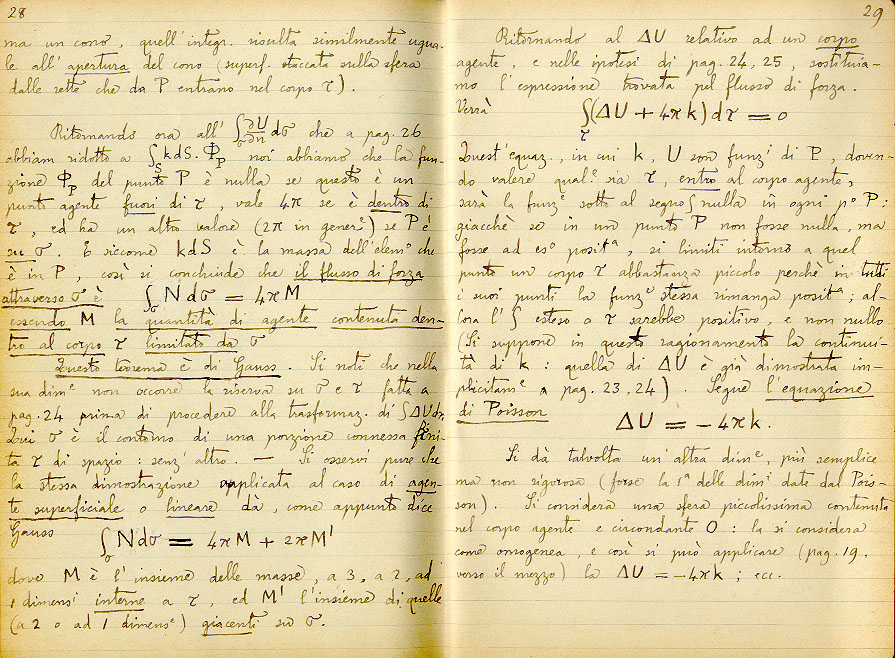 28
ma un cono, quell'integr. risulta similmente ugua-
le all'apertura del cono (superf. staccata sulla sfera
dalle rette che da P entrano nel corpo τ).
Ritornando ora all' ∫σ ∂U/∂n dσ che a pag. 26
abbiam ridotto a ∫S k dS. Φp noi abbiamo che la fun-
zione Φp del punto P è nulla se questo è un
punto agente fuori di τ, vale 4π se è dentro di
τ, ed ha un altro valore (2π in generᵉ) se P è
su σ. E siccome k dS è la massa dell'elemᵒ che
è in P, così si conchiude che il flusso di forza
attraverso σ è ∫σ N dσ = 4π M
essendo M la quantità di agente contenuta den-
tro al corpo τ limitato da σ
Questo teorema è di Gauss. Si noti che nella
sua dimᵉ non occorre la riserva su σ e τ fatta a
pag. 24 prima di procedere alla trasformaz. di ∫ΔU dτ.
Qui σ è il contorno di una porzione connessa fini-
ta τ di spazio: senz'altro. — Si osservi pure che
la stessa dimostrazione applicata al caso di agen-
te superficiale o lineare dà, come appunto dice
Gauss
∫σ N dσ = 4π M + 2π M'
dove M è l'insieme delle masse, a 3, a 2, ad
1 dimensⁱ interne a τ, ed M' l'insieme di quelle
(a 2 o ad 1 dimensᵉ) giacenti su σ.
29
Ritornando al ΔU relativo ad un corpo
agente, e nelle ipotesi di pag. 24, 25, sostituia-
mo l'espressione trovata pel flusso di forza.
Verrà
∫τ (ΔU + 4πk) dτ = 0
Quest'equaz., in cui k, U son funzⁱ di P, doven-
do valere qualᵉ sia τ, entro al corpo agente,
sarà la funzᵉ sotto al segno ∫ nulla in ogni pᵒ P:
giacchè se in un punto P non fosse nulla, ma
fosse ad esᵒ positᵃ, si limiti intorno a quel
punto un corpo τ abbastanza piccolo perchè in tutti
i suoi punti la funzᵉ stessa rimanga positᵃ; al-
lora l'∫ esteso a τ sarebbe positivo, e non nullo
(Si suppone in questo ragionamento la continui-
tà di k: quella di ΔU è già dimostrata im-
plicitamᵉ a pag. 23, 24). Segue l'equazione
di Poisson
ΔU = -4πk.
Si dà talvolta un'altra dimᵉ, più semplice
ma non rigorosa (forse la 1ᵃ delle dimⁱ date dal Pois-
son). Si considera una sfera piccolissima contenuta
nel corpo agente e circondante O: la si considera
come omogenea, e così si può applicare (pag. 19,
verso il mezzo) la ΔU = -4πk; ecc.